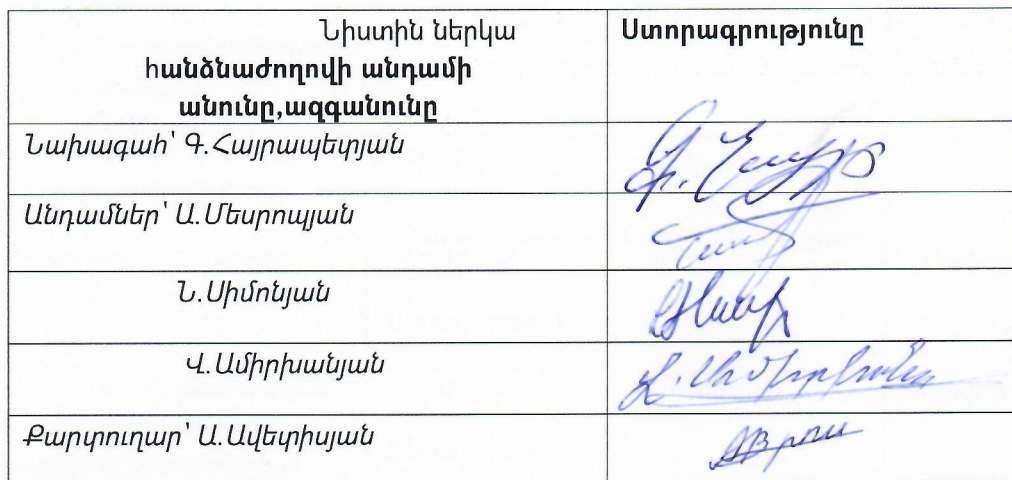 Նիստին ներկա
հանձնաժողովի անդամի
անունը,ազգանունը
Ստորագրությունը
Նախագահ՝ Գ.Հայրապետյան
Անդամներ՝ Ա.Մեսրոպյան
Ն.Սիմոնյան
Վ.Ամիրխանյան
Քարտուղար՝ Ա.Ավետիսյան